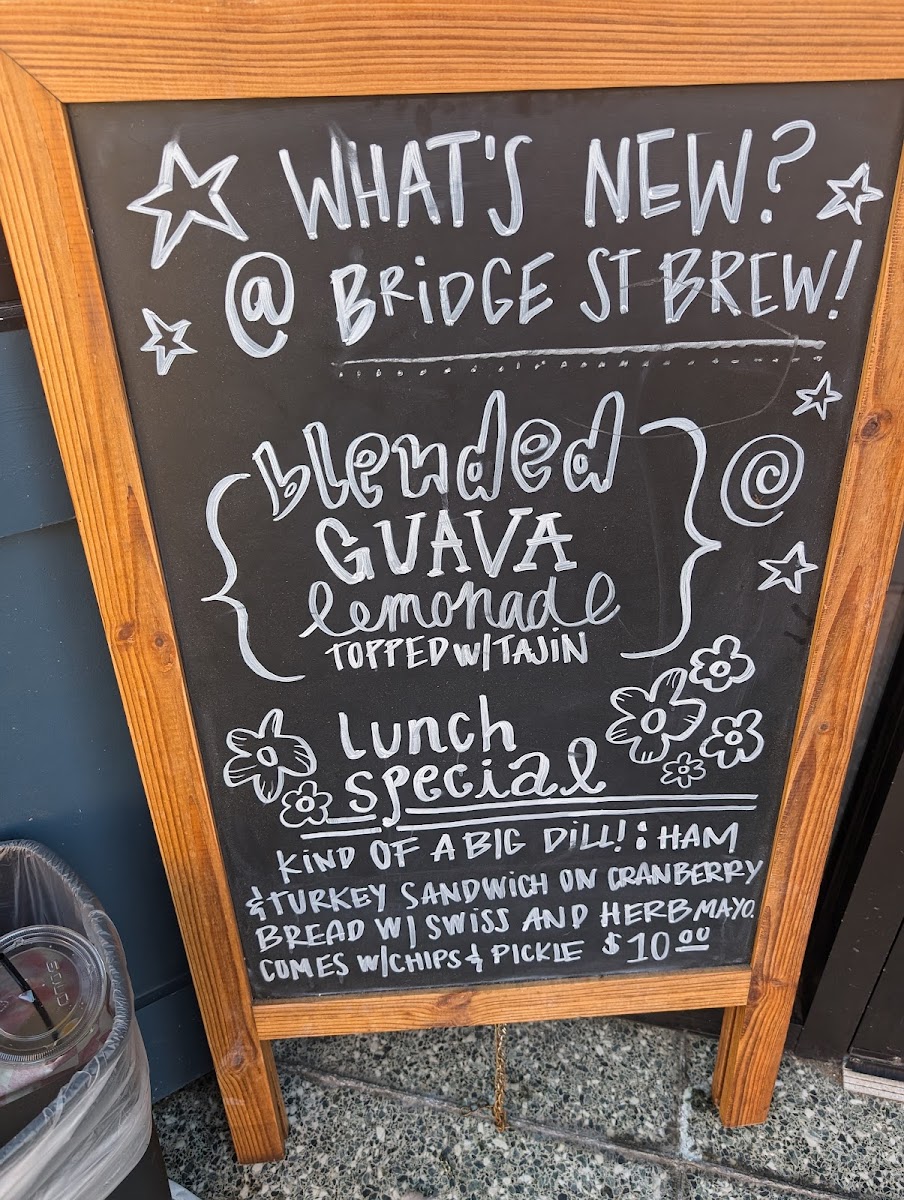 WHAT'S NEW?
@ BRIDGE ST BREW!
blended
GUAVA
lemonade
TOPPED W/ TAJIN
lunch
special
KIND OF A BIG DILL! : HAM
& TURKEY SANDWICH ON CRANBERRY
BREAD W/ SWISS AND HERB MAYO.
COMES W/CHIPS & PICKLE $10.00